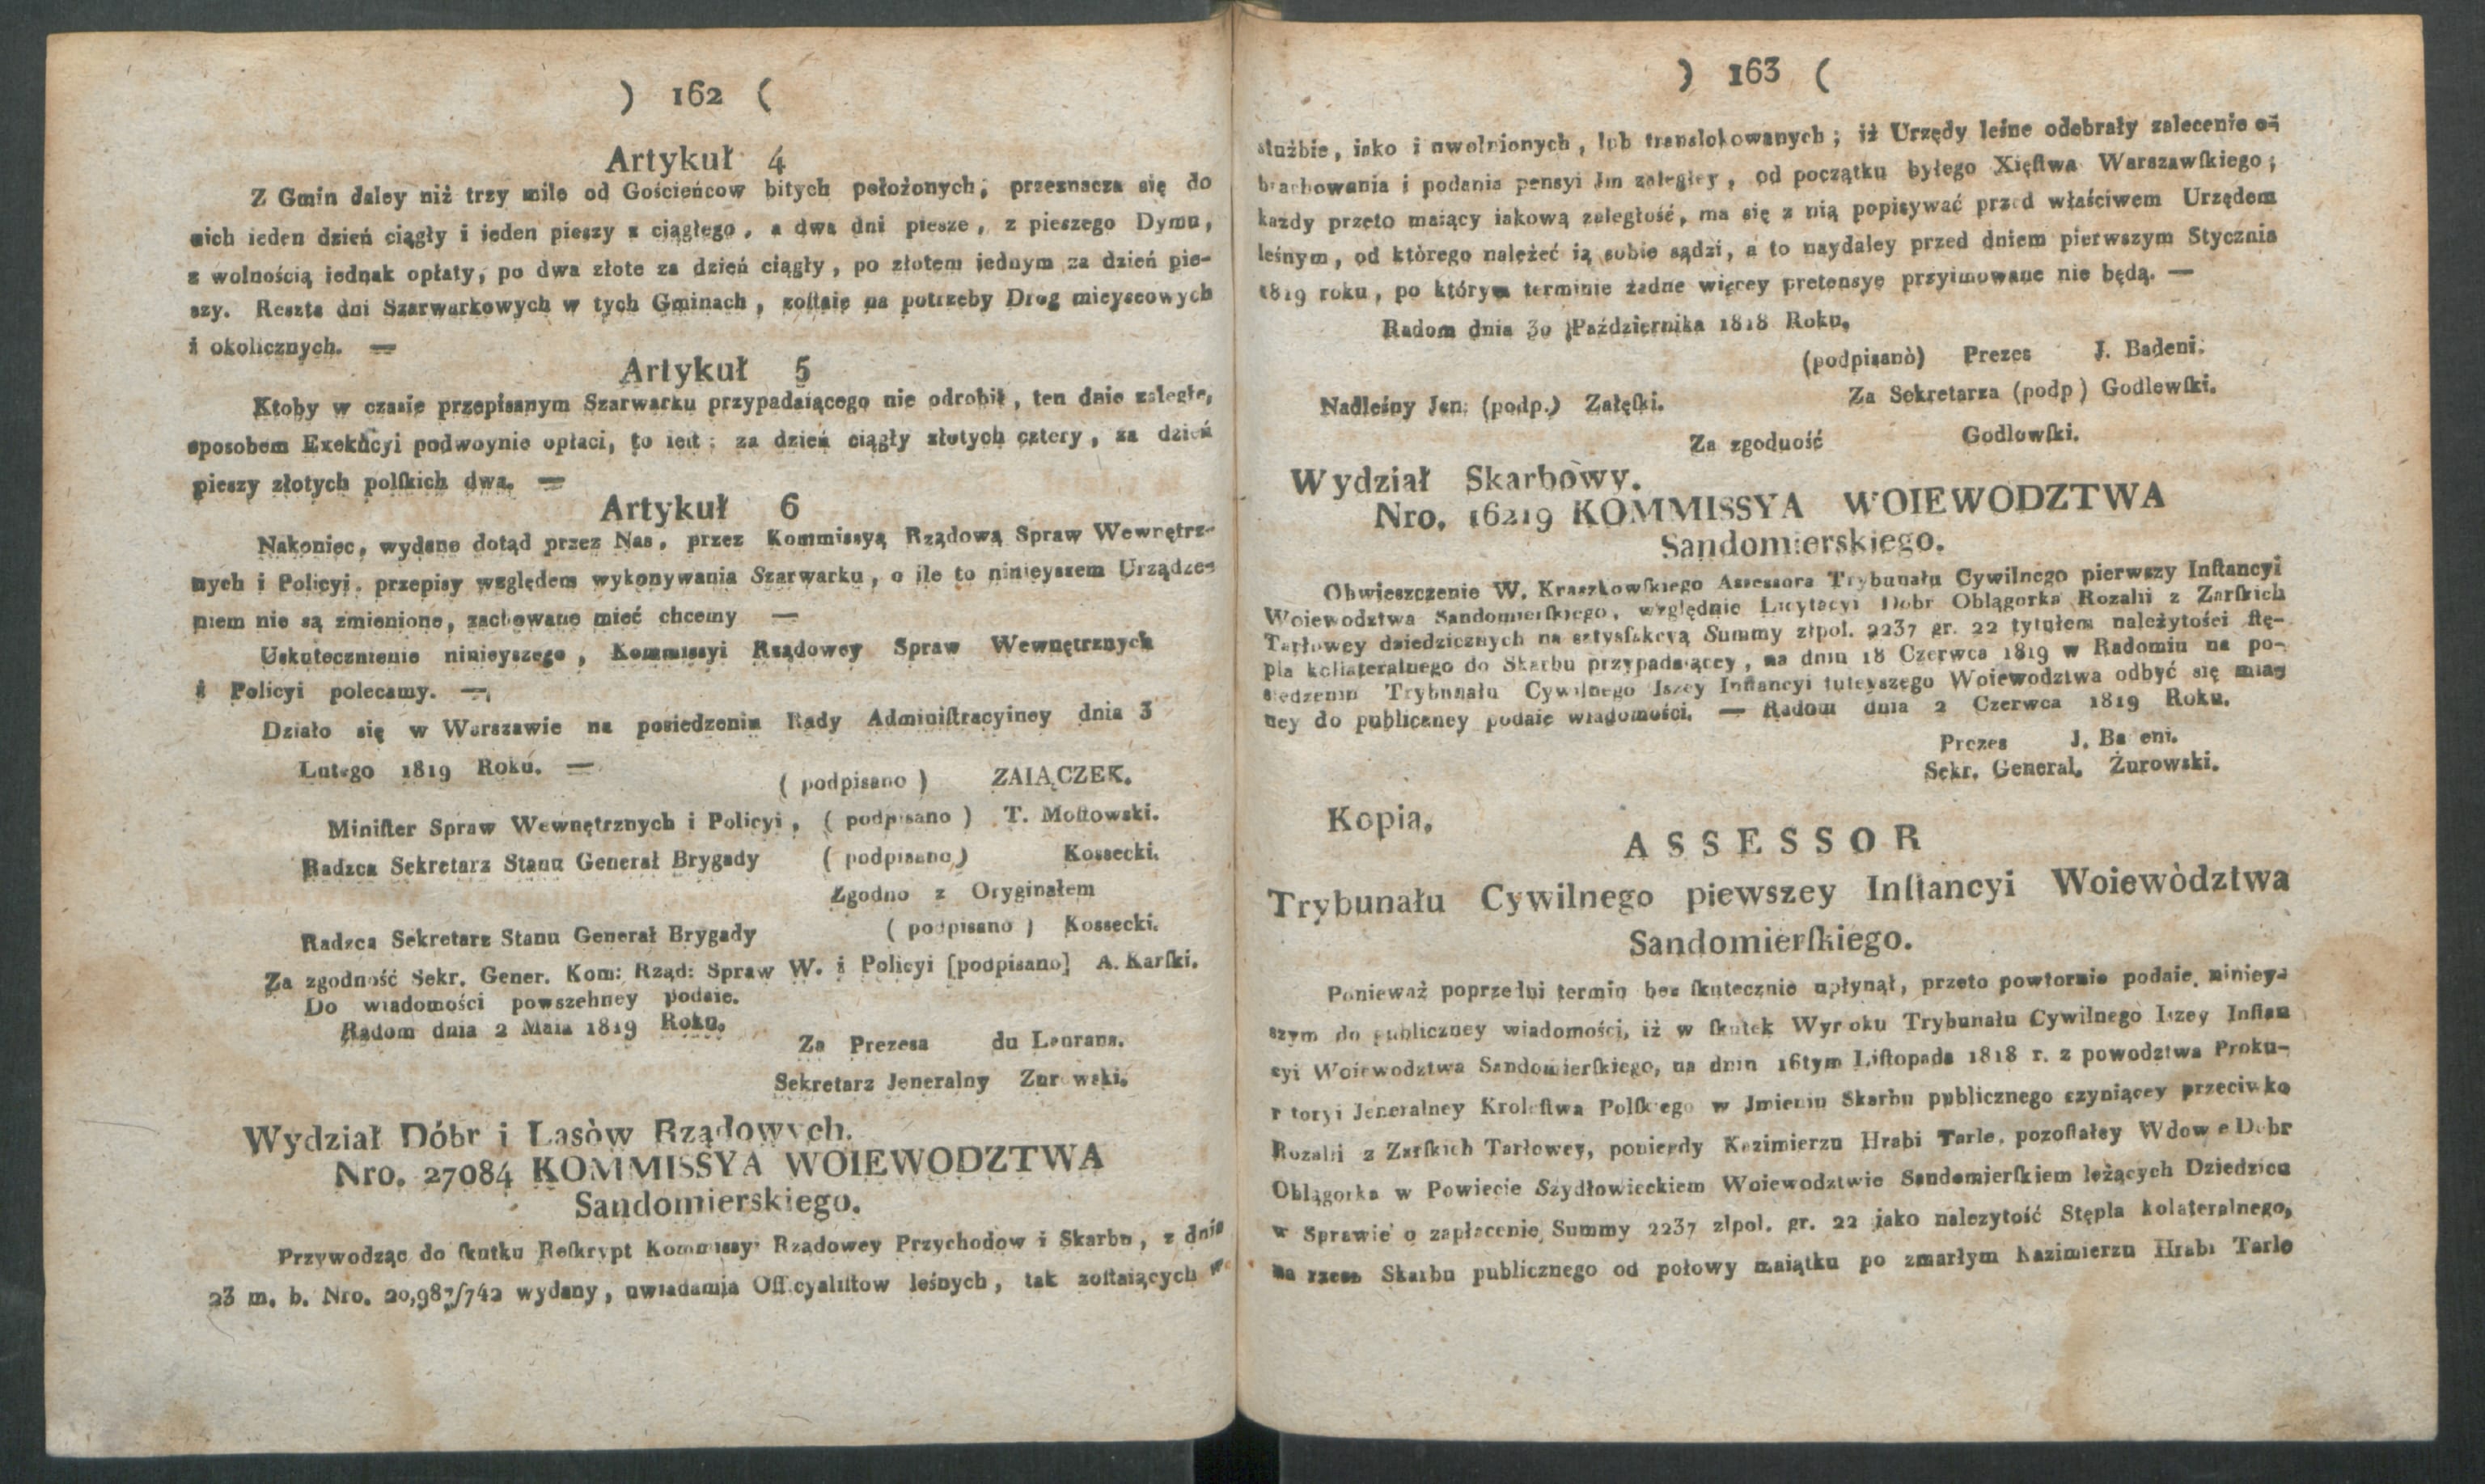 ) 162 (
Artykuł 4
Z Gmin daley niż trzy mile od Gościeńcow bitych położonych, przeznacza się do
nich ieden dzień ciągły i ieden pieszy z ciągłego, a dwa dni piesze, z pieszego Dymu,
z wolnością iednak opłaty, po dwa złote za dzień ciągły, po złotem iednym za dzień pie-
szy. Reszta dni Szarwarkowych w tych Gminach, zoſtaie na potrzeby Drog mieyscowych
i okolicznych. —
Artykuł 5
Ktoby w czasie przepisanym Szarwarku przypadaiącego nie odrobił, ten dnie zaległe,
sposobem Exekucyi podwoynie opłaci, to ieſt: za dzień ciągły złotych cztery, za dzień
pieszy złotych polſkich dwa. —
Artykuł 6
Nakoniec, wydane dotąd przez Nas, przez Kommissyą Rządową Spraw Wewnętrz-
nych i Policyi, przepisy względem wykonywania Szarwarku, o ile to ninieyszem Urządze-
niem nie są zmienione, zachowane mieć chcemy —
Uskutecznienie ninieyszego, Kommissyi Rządowey Spraw Wewnętrznych
i Policyi polecamy. —
Działo się w Warszawie na posiedzeniu Rady Adminiſtracyiney dnia 3
Lutego 1819 Roku. —
( podpisano ) ZAIĄCZEK.
Miniſter Spraw Wewnętrznych i Policyi, ( podpisano ) T. Moſtowski.
Radzca Sekretarz Stanu Generał Brygady ( podpisano ) Kossecki.
Zgodno z Oryginałem
Radzca Sekretarz Stanu Generał Brygady ( podpisano ) Kossecki.
Za zgodność Sekr. Gener. Kom: Rząd: Spraw W. i Policyi [podpisano] A. Karſki.
Do wiadomości powszehney podaie.
Radom dnia 2 Maia 1819 Roku.
Za Prezesa du Laurans.
Sekretarz Jeneralny Żurowski.
Wydział Dóbr i Lasòw Rządowych.
Nro. 27084 KOMMISSYA WOIEWODZTWA
Sandomierskiego.
Przywodząc do ſkutku Reſkrypt Kommissyi Rządowey Przychodow i Skarbu, z dnia
23 m. b. Nro. wydany, uwiadamia Officyaliſtow leśnych, tak zoſtaiących w
) 163 (
służbie, iako i uwolnionych, lub translokowanych; iż Urzędy leśne odebrały zalecenie o-
brachowania i podania pensyi Im zaległey, od początku byłego Xięſtwa Warszawſkiego;
każdy przeto maiący iakową zaległość, ma się z nią popisywać przed właściwem Urzędem
leśnym, od którego należeć ią sobie sądzi, a to naydaley przed dniem pierwszym Stycznia
1819 roku, po którym terminie żadne więcey pretensye przyimowane nie będą. —
Radom dnia 30 Października 1818 Roku.
(podpisanò) Prezes J. Badeni.
Za Sekretarza (podp) Godlewſki.
Nadleśny Jen: (podp.) Załęſki.
Za zgodność Godlewſki.
Wydział Skarbòwy.
Nro. 16219 KOMMISSYA WOIEWODZTWA
Sandomierskiego.
Obwieszczenie W. Kraszkowſkiego Assessora Trybunału Cywilnego pierwszy Inſtancyi
Woiewodztwa Sandomierſkiego, względnie Licytacyi Dobr Oblągorka Rozalii z Zarſkich
Tarłowey dziedzicznych na satysfakcyą Summy złpol. 2237 gr. 22 tytułem należytości ſtę-
pla kollateralnego do Skarbu przypadaiącey, na dniu 18 Czerwca 1819 w Radomiu na po-
siedzeniu Trybunału Cywilnego Iszey Inſtancyi tuteyszego Woiewodztwa odbyć się maią-
cey do publiczney podaie wiadomości. — Radom dnia 2 Czerwca 1819 Roku.
Prezes J. Badeni.
Sekr. General. Żurowski.
Kopia.
ASSESSOR
Trybunału Cywilnego piewszey Inſtancyi Woiewòdztwa
Sandomierſkiego.
Ponieważ poprzedni termin bez ſkutecznie upłynął, przeto powtornie podaie niniey-
szym do publiczney wiadomości, iż w ſkutek Wyroku Trybunału Cywilnego Iszey Inſtan
cyi Woiewodztwa Sandomierſkiego, na dniu 16tym Liſtopada 1818 r. z powodztwa Proku-
ratoryi Jeneralney Kroleſtwa Polſkiego w Jmieniu Skarbu publicznego czyniącey przeciwko
Rozalii z Zarſkich Tarłowey, poniegdy Kazimierzu Hrabi Tarle, pozoſtałey Wdowie Dobr
Oblągorka w Powiecie Szydłowieckiem Woiewodztwie Sandomierſkiem leżących Dziedzicu
w Sprawie o zapłacenie Summy 2237 złpol. gr. 22 jako nalezytość Stępla kolateralnego,
na rzecz Skarbu publicznego od połowy maiątku po zmarłym Kazimierzu Hrabi Tarle